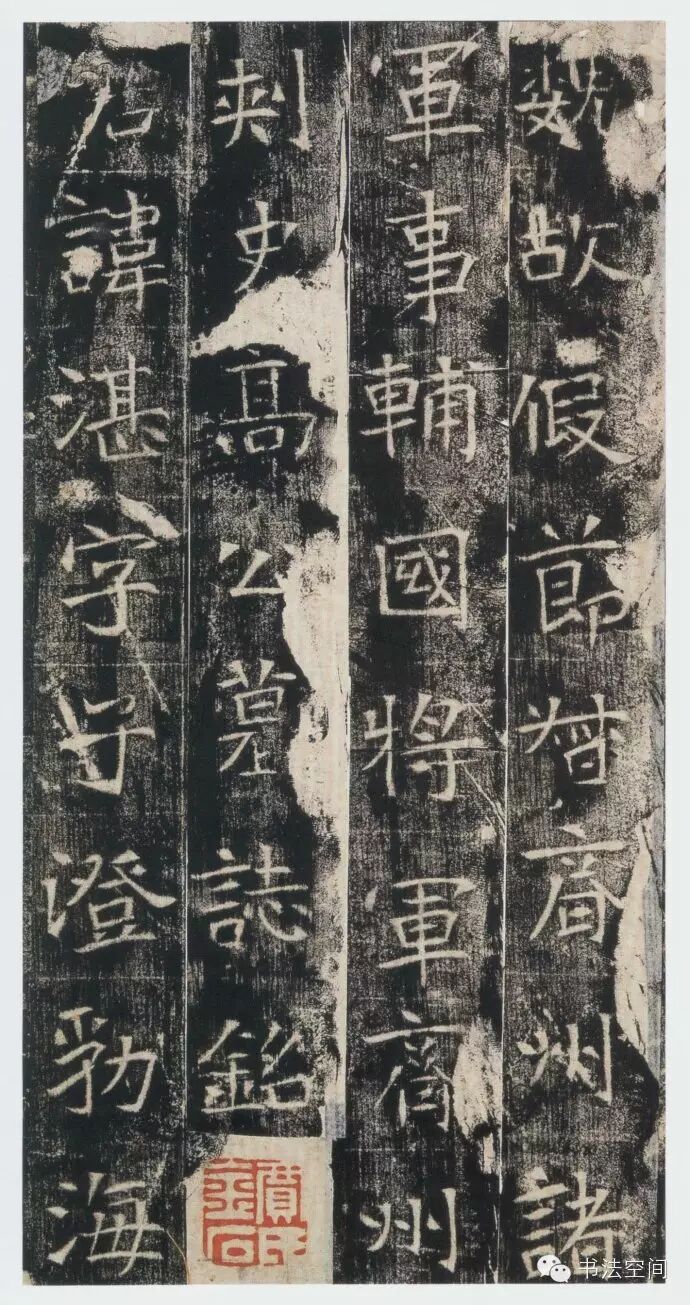 魏故假節督齊州諸
軍事輔國將軍齊州
刺史高公墓誌銘
君諱湛字子澄勃海
书法空间